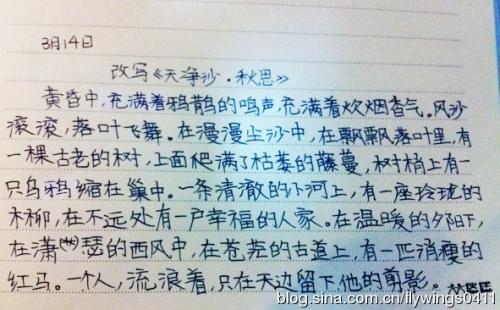 3月14日
改写《天净沙·秋思》
黄昏中,充满着鸦鹊的鸣声,充满着炊烟香气。风沙
滚滚,落叶飞舞。在漫漫尘沙中,在飘飘落叶里,有
一棵古老的树,上面爬满了枯萎的藤蔓,树梢上有一
只乌鸦缩在巢中。一条清澈的小河上,有一座玲珑的
在不远处有一户幸福的人家。在温暖的夕阳下,
在潇瑟的西风中,在苍茫的古道上,有一匹消瘦的
红马。一个人,流浪着,只在天边留下他的剪影。
blog.sina.com.cn/flywings0411